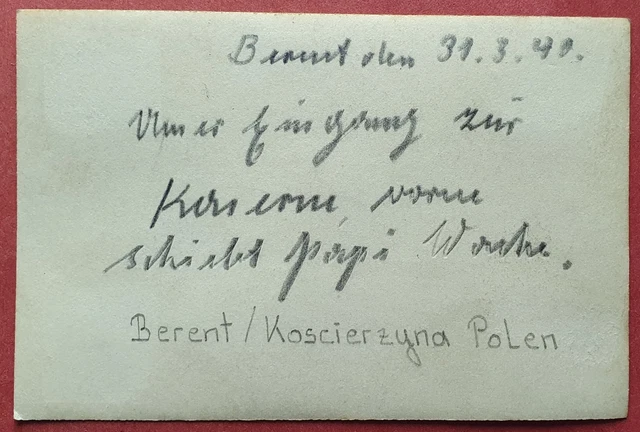 Berent den 31.3.40.
Unser Eingang zur
Kaserne, vorne
schiebt Papi Wache.
Berent/Koscierzyna Polen